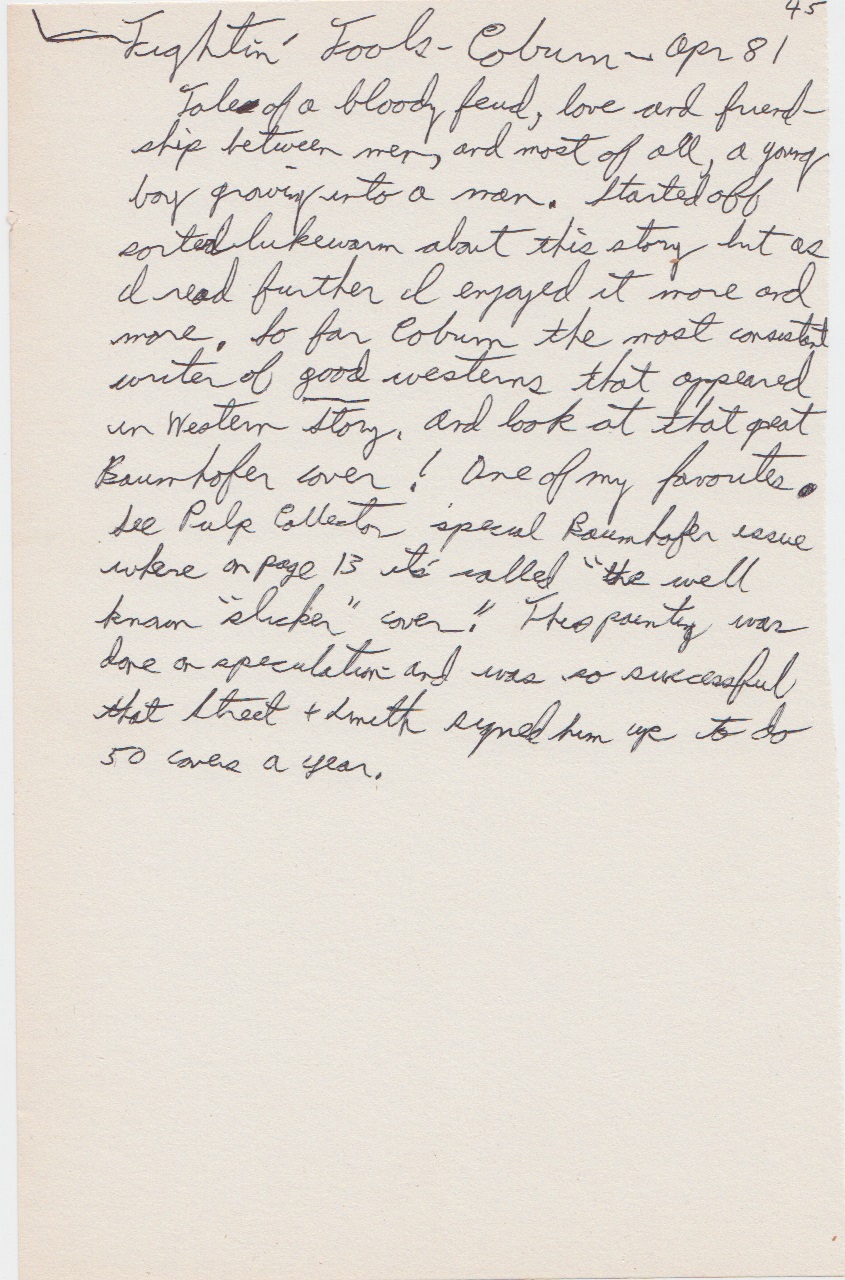 45
Fightin' Fools - Coburn - Apr 81
Tale of a bloody feud, love and friend-
ship between men, and most of all, a young
boy growing into a man. Started off
sorted lukewarm about this story but as
I read further I enjoyed it more and
more. So far Coburn the most consistent
writer of good westerns that appeared
in Western Story. And look at that great
Baumhofer cover! One of my favorites.
See Pulp Collector special Baumhofer issue
where on page 13 it's called "the well
known "slicker" cover!" This painting was
done on speculation and was so successful
that Street + Smith signed him up to do
50 covers a year.